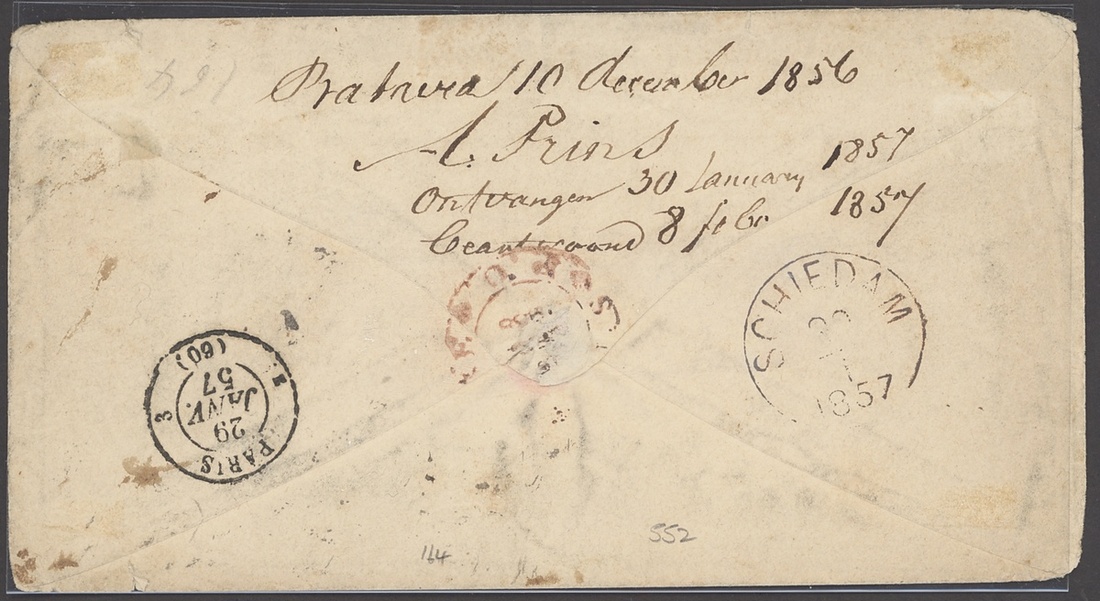 164
Batavia 10 december 1856
A. Prins
Ontvangen 30 January 1857
beantwoord 8 febr 1857
SCHIEDAM
1857
PARIS
29
JANV.
57
(60)
3
164
552